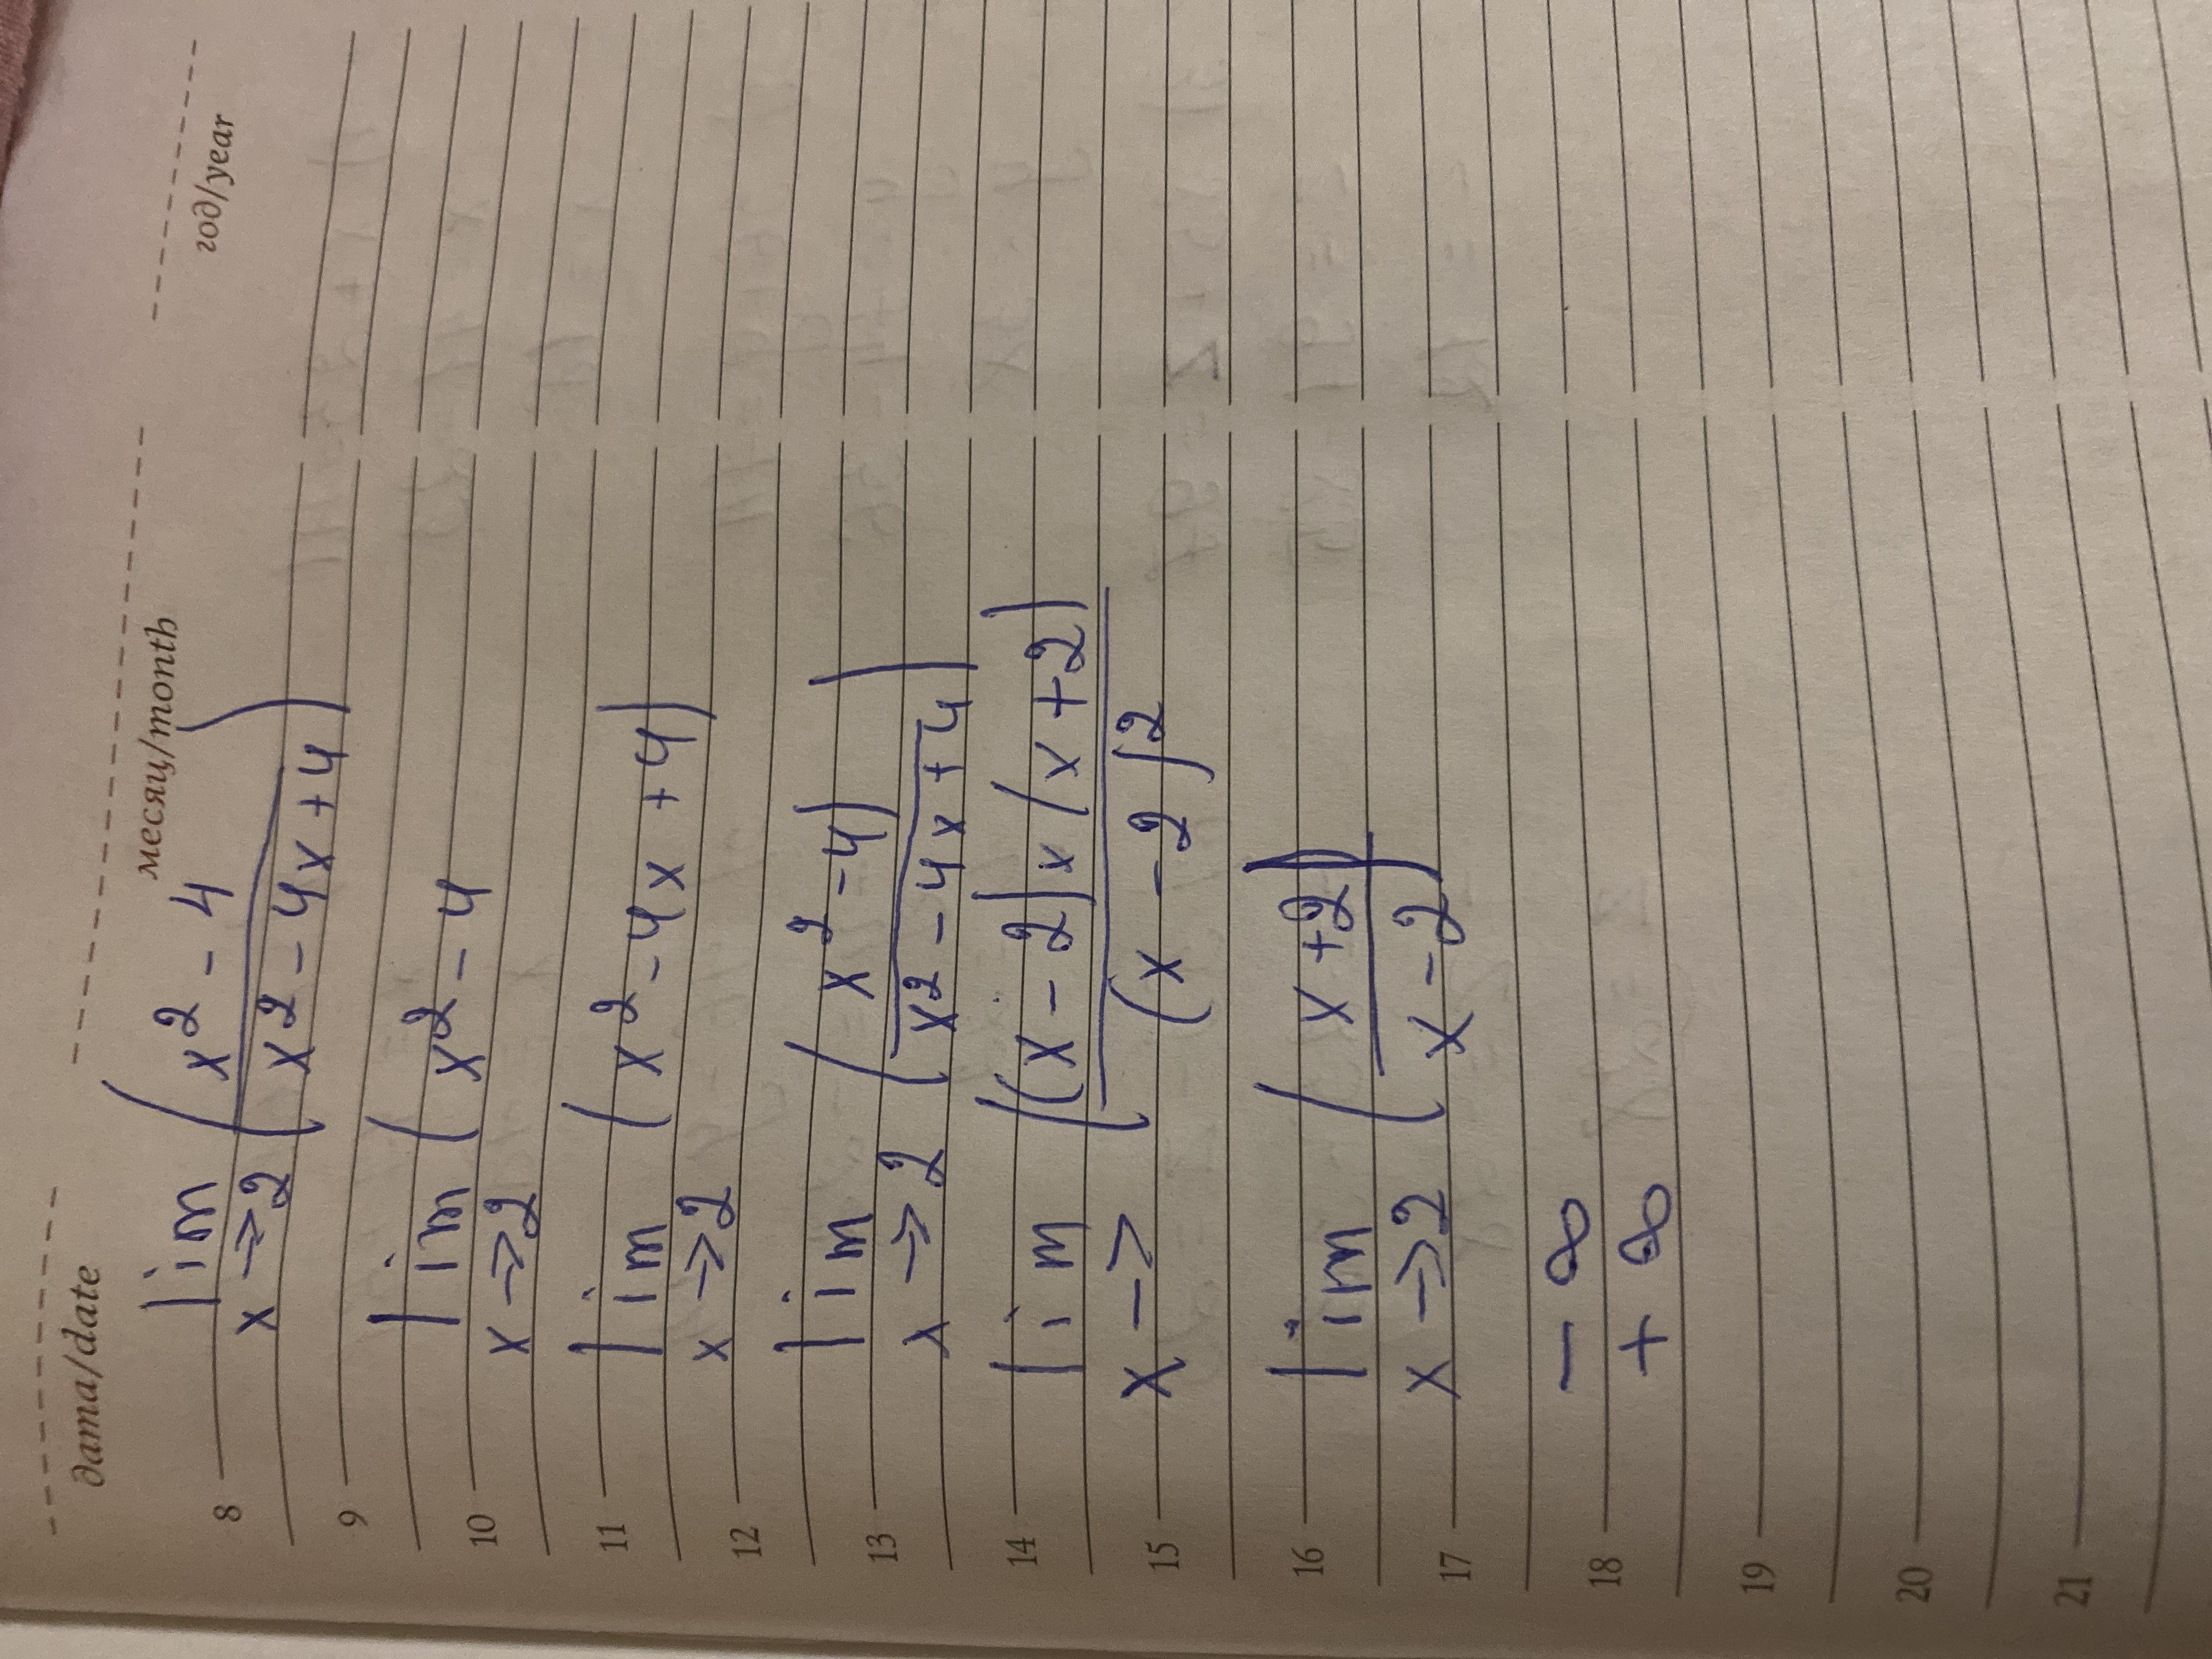 дата/date месяц/month год/year
8 lim ( x² - 4
x->2 x² - 4x + 4 )
9
10 lim ( x² - 4
x->2
11 lim ( x² - 4x + 4 )
x->2
12
13 lim ( x² - 4)
x->2 ( x² - 4x + 4 )
14 lim ((x - 2)x(x + 2)
15 x-> (x - 2)²
16 lim ( x + 2 )
17 x->2 x - 2 )
18 - ∞
+ ∞
19
20
21